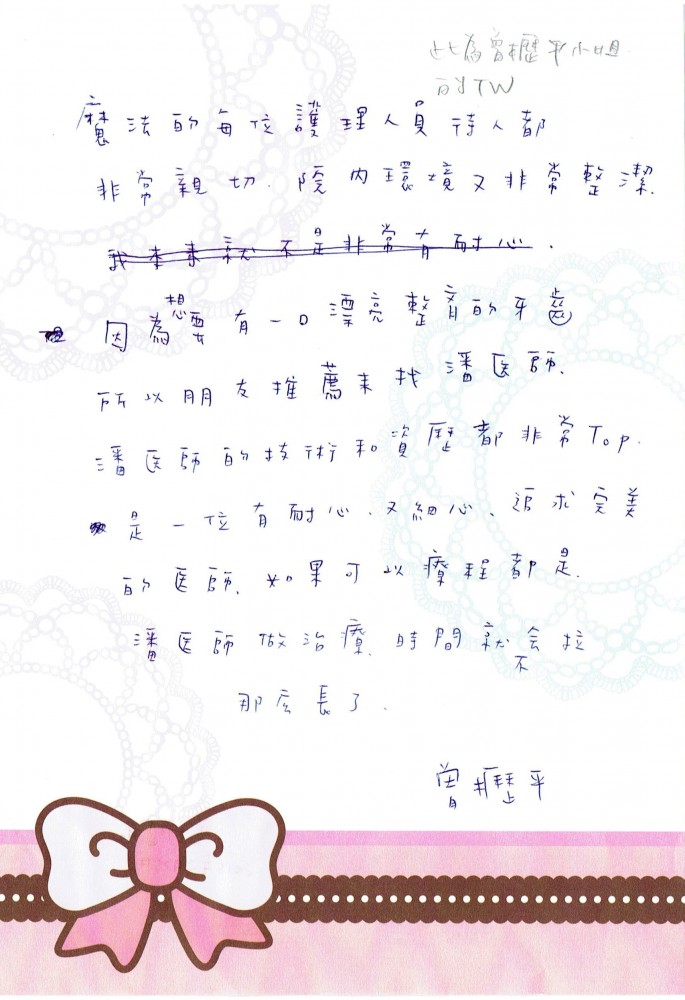 此為曾櫪平小姐
的TW
魔法的每位護理人員待人都
非常親切.院內環境又非常整潔.
我本來就不是非常有耐心.
因為想要有一口漂亮整齊的牙齒
所以朋友推薦來找潘医師.
潘医師的技術和資歷都非常Top.
是一位有耐心.又細心、追求完美
的医師.如果可以療程都是.
潘医師做治療.時間就不会拉
那么長了.
曾櫪平